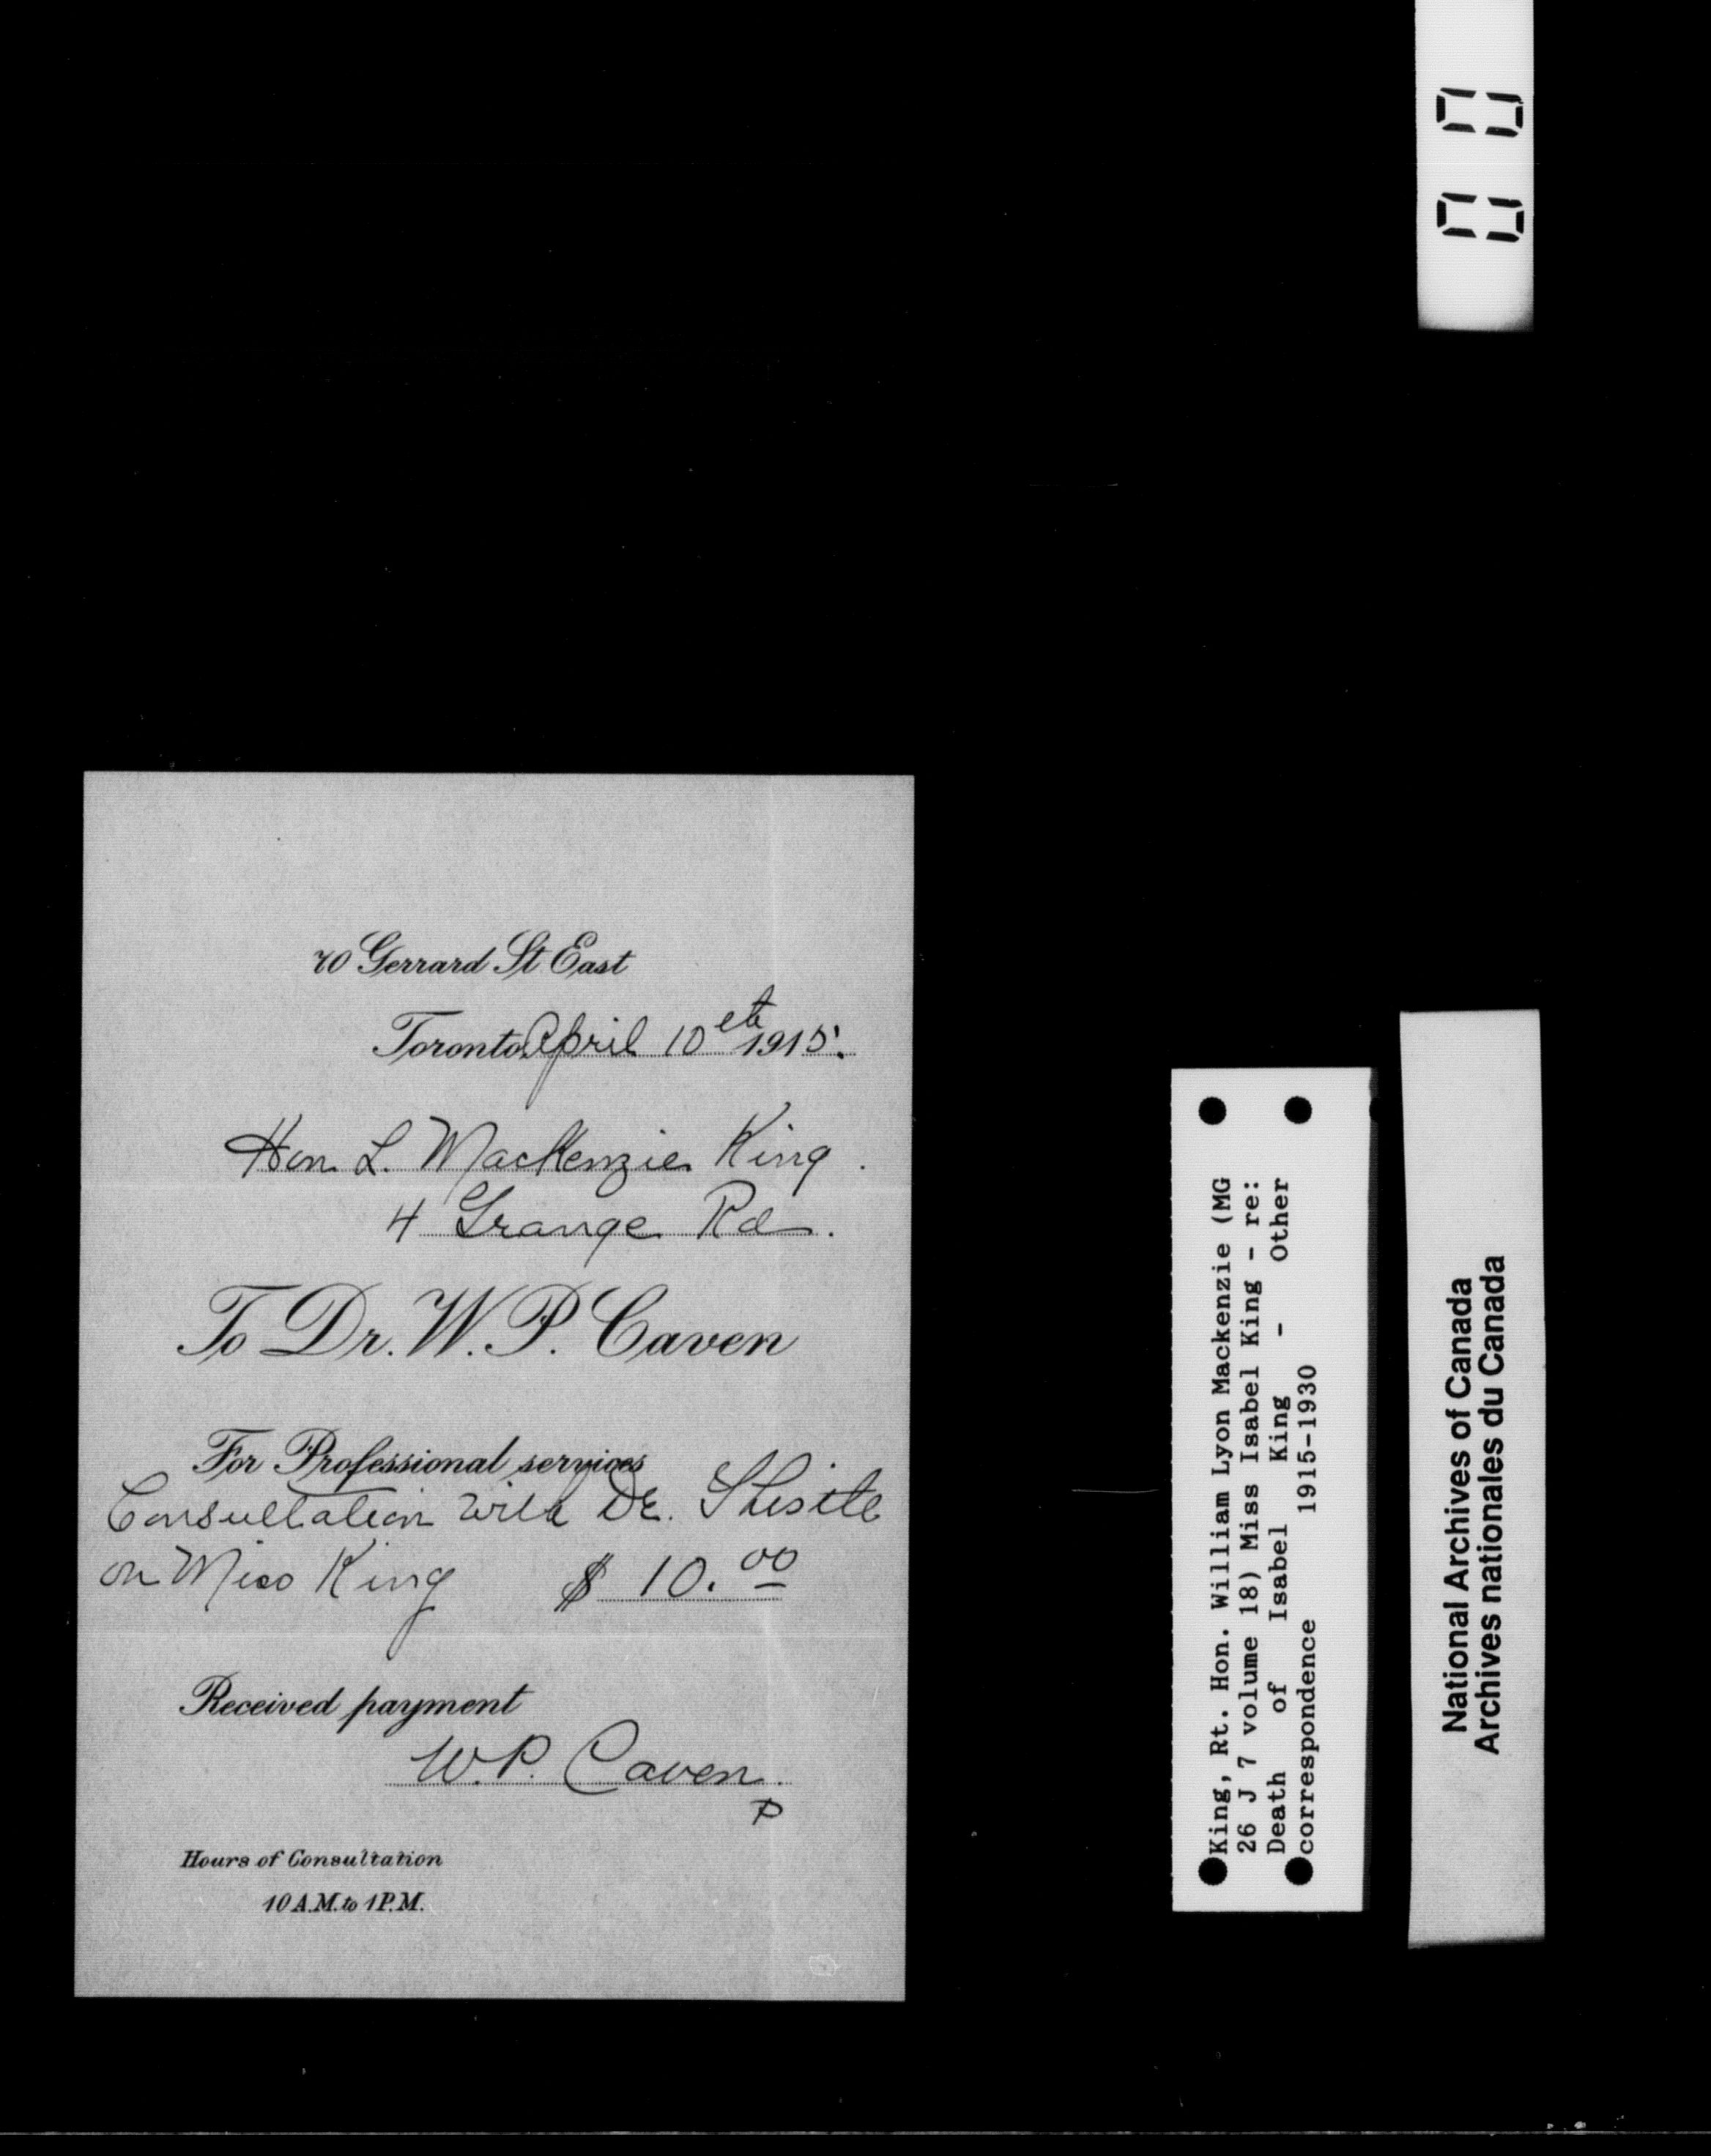 70 Gerrard St East
Toronto, April 10th 1915.
Hon. L. MacKenzie King.
4 Grange Rd.
To Dr. W. P. Caven
For Professional services
Consultation with Dr.
on Miss King $ 10.00
Received payment
W. P. Caven.
P
Hours of Consultation
10 A.M. to 1 P.M.
King, Rt. Hon. William Lyon Mackenzie (MG
26 J 7 volume 18) Miss Isabel King - re:
Death of Isabel King - Other
correspondence 1915-1930
National Archives of Canada
Archives nationales du Canada
00